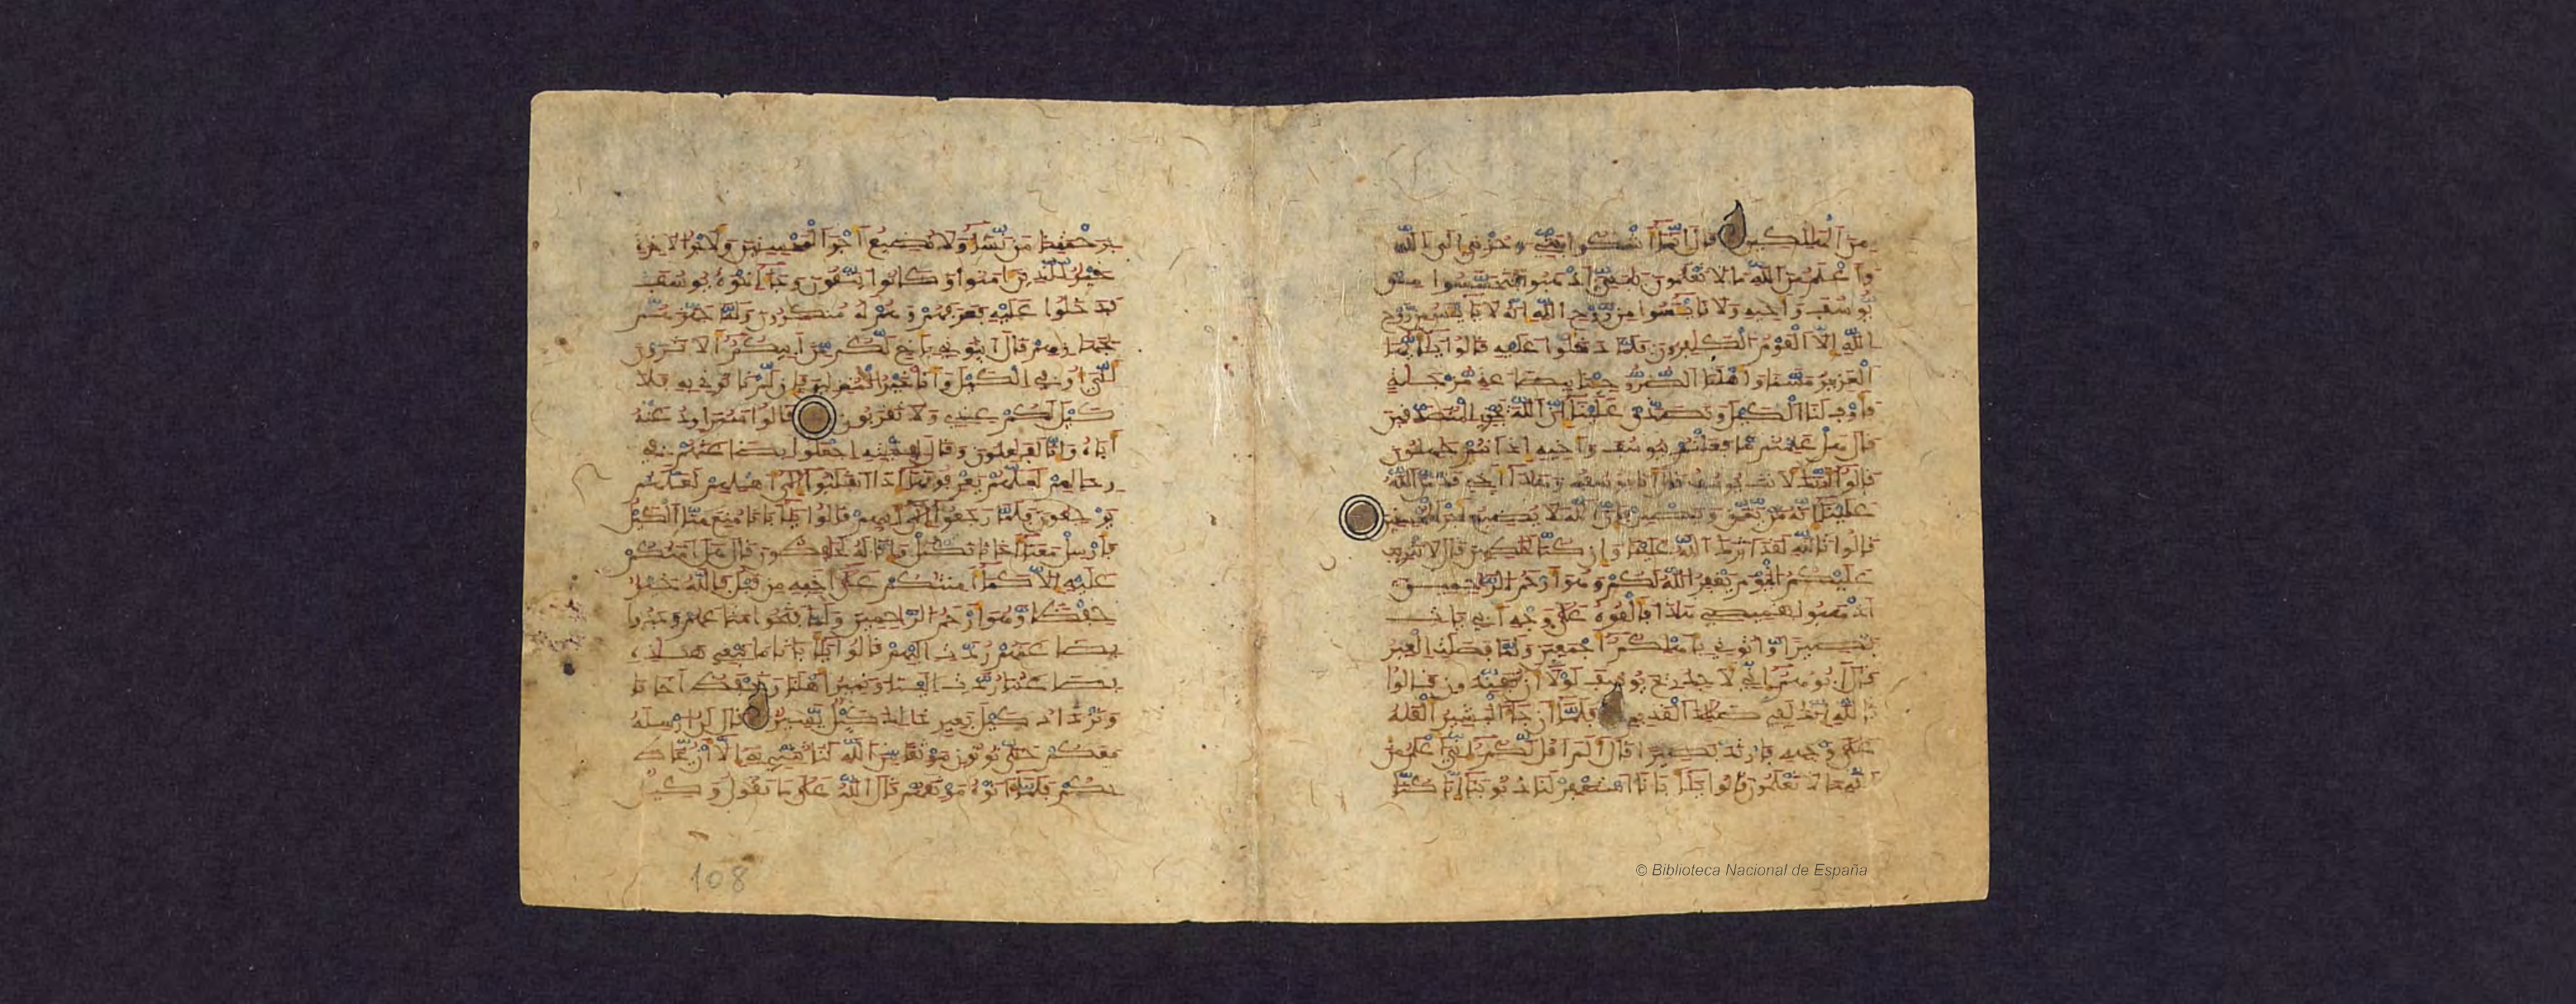 من الهلكين قال إنما أشكوا بثي وحزني إلى الله
وأعلم من الله ما لا تعلمون يبني اذهبوا فتحسسوا من
يوسف وأخيه ولا تايئسوا من روح الله إنه لا يايئس من روح
الله إلا القوم الكفرون فلما دخلوا عليه قالوا يأيها
العزيز مسنا وأهلنا الضر وجئنا ببضعة مزجية
فأوف لنا الكيل وتصدق علينا إن الله يجزي المتصدقين
قال هل علمتم ما فعلتم بيوسف وأخيه إذ أنتم جهلون
قالوا أنك لأنت يوسف قال أنا يوسف وهذا أخي قد من الله
علينا إنه من يتق ويصبر فإن الله لا يضيع أجر المحسنين
قالوا تالله لقد اثرك الله علينا وإن كنا لخطين قال لا تثريب
عليكم اليوم يغفر الله لكم وهو أرحم الرحمين
اذهبوا بقميصي هذا فألقوه على وجه أبي يات
بصيرا واتوني بأهلكم أجمعين ولما فصلت العير
قال أبوهم إني لأجد ريح يوسف لولا أن تفندون قالوا
تالله إنك لفي ضللك القديم فلما أن جاء البشير ألقيه
على وجهه فارتد بصيرا قال ألم أقل لكم إني أعلم من
الله ما لا تعلمون قالوا يأبانا استغفر لنا ذنوبنا إنا كنا
برحمتنا من نشاء ولا نضيع أجر المحسنين ولأجر الاخرة
خير للذين امنوا وكانوا يتقون وجاء إخوة يوسف
فدخلوا عليه فعرفهم وهم له منكرون ولما جهزهم
بجهازهم قال ايتوني بأخ لكم من أبيكم ألا ترون
أني أوفي الكيل وأنا خير المنزلين فإن لم تاتوني به فلا
كيل لكم عندي ولا تقربون قالوا سنراود عنه
أباه وإنا لفعلون وقال لفتيته اجعلوا بضعتهم في
رحالهم لعلهم يعرفونها إذا انقلبوا إلى أهلهم لعلهم
يرجعون فلما رجعوا إلى أبيهم قالوا يأبانا منع منا الكيل
فأرسل معنا أخانا نكتل وإنا له لحفظون قال هل امنكم
عليه إلا كما أمنتكم على أخيه من قبل فالله خير
حفظا وهو أرحم الرحمين ولما فتحوا متعهم وجدوا
بضعتهم ردت إليهم قالوا يأبانا ما نبغي هذه
بضعتنا ردت إلينا ونمير أهلنا ونحفظ أخانا
ونزداد كيل بعير ذلك كيل يسير قال لن أرسله
معكم حتى توتون موثقا من الله لتاتنني به إلا أن يحاط
بكم فلما اتوه موثقهم قال الله على ما نقول وكيل
108
© Biblioteca Nacional de España